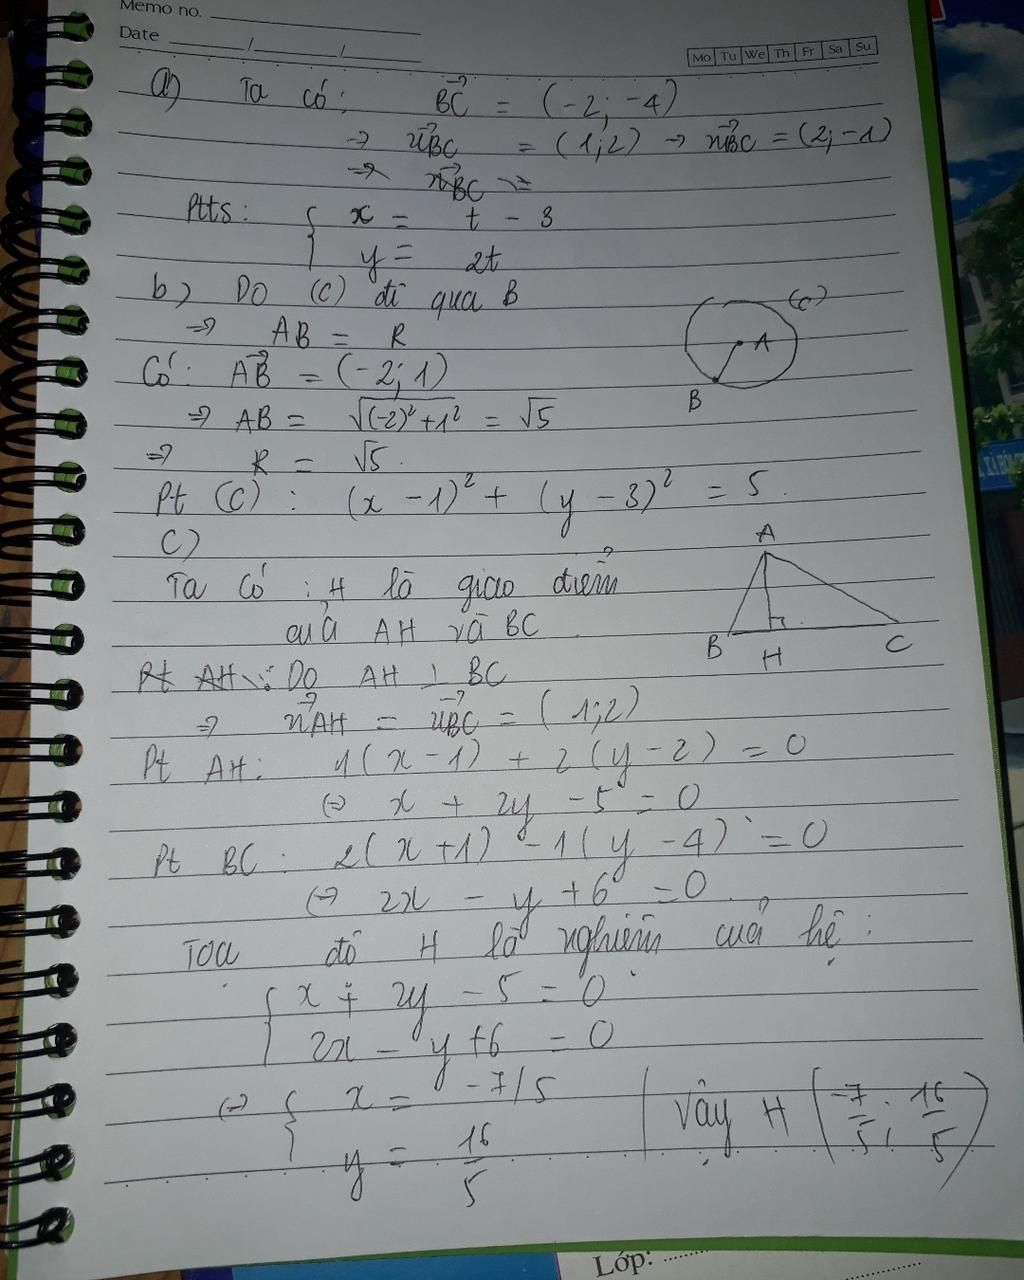 Memo no.
Date / /
Mo Tu We Th Fr Sa Su
a) Ta có: BC = (-2; -4)
→ uBC = (1; 2) → nBC = (2; -1)
→ nBC =
Ptts: { x = t - 3
y = 2t
b) Do (C) đi qua B
⇒ AB = R
(C)
A
B
Có: AB = (-2; 1)
⇒ AB = √(-2)²+1² = √5
⇒ R = √5.
Pt (C): (x - 1)² + (y - 3)² = 5.
C)
Ta có: H là giao điểm
của AH và BC
A
B
H
C
Pt AH: Do AH ⊥ BC
⇒ nAH = uBC = (1; 2)
Pt AH: 1(x - 1) + 2(y - 2) = 0
(=) x + 2y - 5 = 0
Pt BC: 2(x + 1) - 1(y - 4) = 0
(=) 2x - y + 6 = 0.
Toạ độ H là nghiệm của hệ:
{ x + 2y - 5 = 0
2x - y + 6 = 0
(=) { x = -7/5
y = 16/5
Vậy H (-7/5; 16/5)
Lớp: